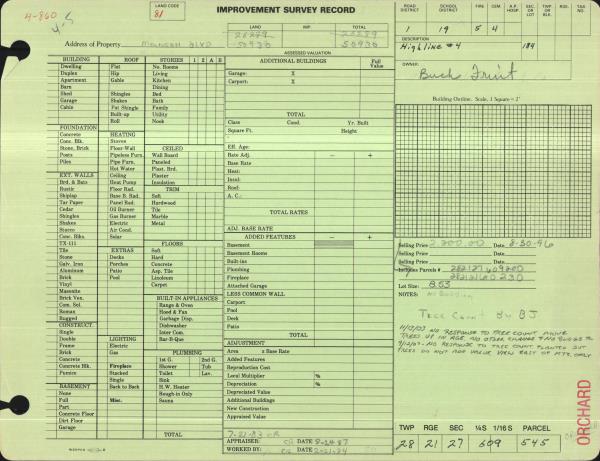 4-860
LAND CODE
81
IMPROVEMENT SURVEY RECORD
LAND TOTAL
50930 50930
Address of Property BLVD
ASSESSED VALUATION
ROAD DISTRICT SCHOOL DISTRICT FIRE CEM. A.P. HOSP. SEC. OR LOT TWP OR BLK. RGE. TAX NO.
1 19 5 4
DESCRIPTION
Highline #4 184
OWNER:
Buck Fruit
Building Outline. Scale, 1 Square = 1'
BUILDING ROOF STORIES 1 2 A B
Dwelling Flat No. Rooms
Duplex Hip Living
Apartment Gable Kitchen
Barn Dining
Shed Shingles Bed
Garage Shakes Bath
Cabin Pat Shingle Family
Built-up Utility
Roll Nook
FOUNDATION
Concrete HEATING
Conc. Blk. Stoves CEILED
Stone, Brick Floor-Wall Wall Board
Posts Pipeless Furn. Paneled
Piles Pipe Furn. Plast. Brd.
Hot Water Plaster
EXT. WALLS Ceiling Insulation
Brd. & Bats Heat Pump
Rustic Floor Rad. TRIM
Shiplap Base B. Rad. Soft
Tar Paper Panel Rad. Hardwood
Cedar Oil Burner Tile
Shingles Gas Burner Marble
Shakes Electric Metal
Stucco Air Cond.
Conc. Blks. Solar
TX-111 FLOORS
Tile EXTRAS Soft
Stone Decks Hard
Galv. Iron Porches Concrete
Aluminum Patio Asp. Tile
Brick Pool Linoleum
Vinyl Carpet
Masonite
Brick Ven. BUILT-IN APPLIANCES
Com. Sel. Range & Oven
Roman Hood & Fan
Rugged Garbage Disp.
CONSTRUCT. Dishwasher
Single Inter Com.
Double LIGHTING Bar-B-Que
Frame Electric
Brick Gas PLUMBING
Concrete 1st G. 2nd G.
Conc. Blk. Fireplace Shower Tub
Pumice Stacked Toilet Lav.
Single Sink
BASEMENT Back to Back H.W. Heater
None Rough-in Only
Full Misc. Sauna
Part
Concrete Floor
Dirt Floor
Garage TOTAL
ADDITIONAL BUILDINGS Full Value
Garage: X
Carport: X
TOTAL
Class Cond. Yr. Built
Square Ft. Height
Eff. Age:
Rate Adj. — +
Base Rate
Heat:
Insul:
Roof:
A. C.:
TOTAL RATES
ADJ. BASE RATE
ADDED FEATURES — +
Basement
Basement Rooms
Built-ins
Plumbing
Fireplace
Attached Garage
LESS COMMON WALL
Carport
Pool
Deck
Patio
TOTAL
ADJUSTMENT
Area x Base Rate
Added Features
Reproduction Cost
Local Multiplier %
Depreciation %
Depreciated Value
Additional Buildings
New Construction
Appraised Value
7-21-83 CR
APPRAISER: CR DATE 8-24-87
WORKED BY: CG DATE 2-21-84
Selling Price 2,200.00 Date 8-30-96
Selling Price Date
Includes Parcel # 282127 609200
Lot Size: 8.53
NOTES: No Building
Tree Count By BJ
NO RESPONSE TO TREE COUNT. MOVE
TREES UP IN AGE, NO OTHER CHANGE
NO RESPONSE TO TREE COUNT
ORCHARD
TWP RGE SEC ¼S 1/16 S PARCEL
28 21 27 609 545